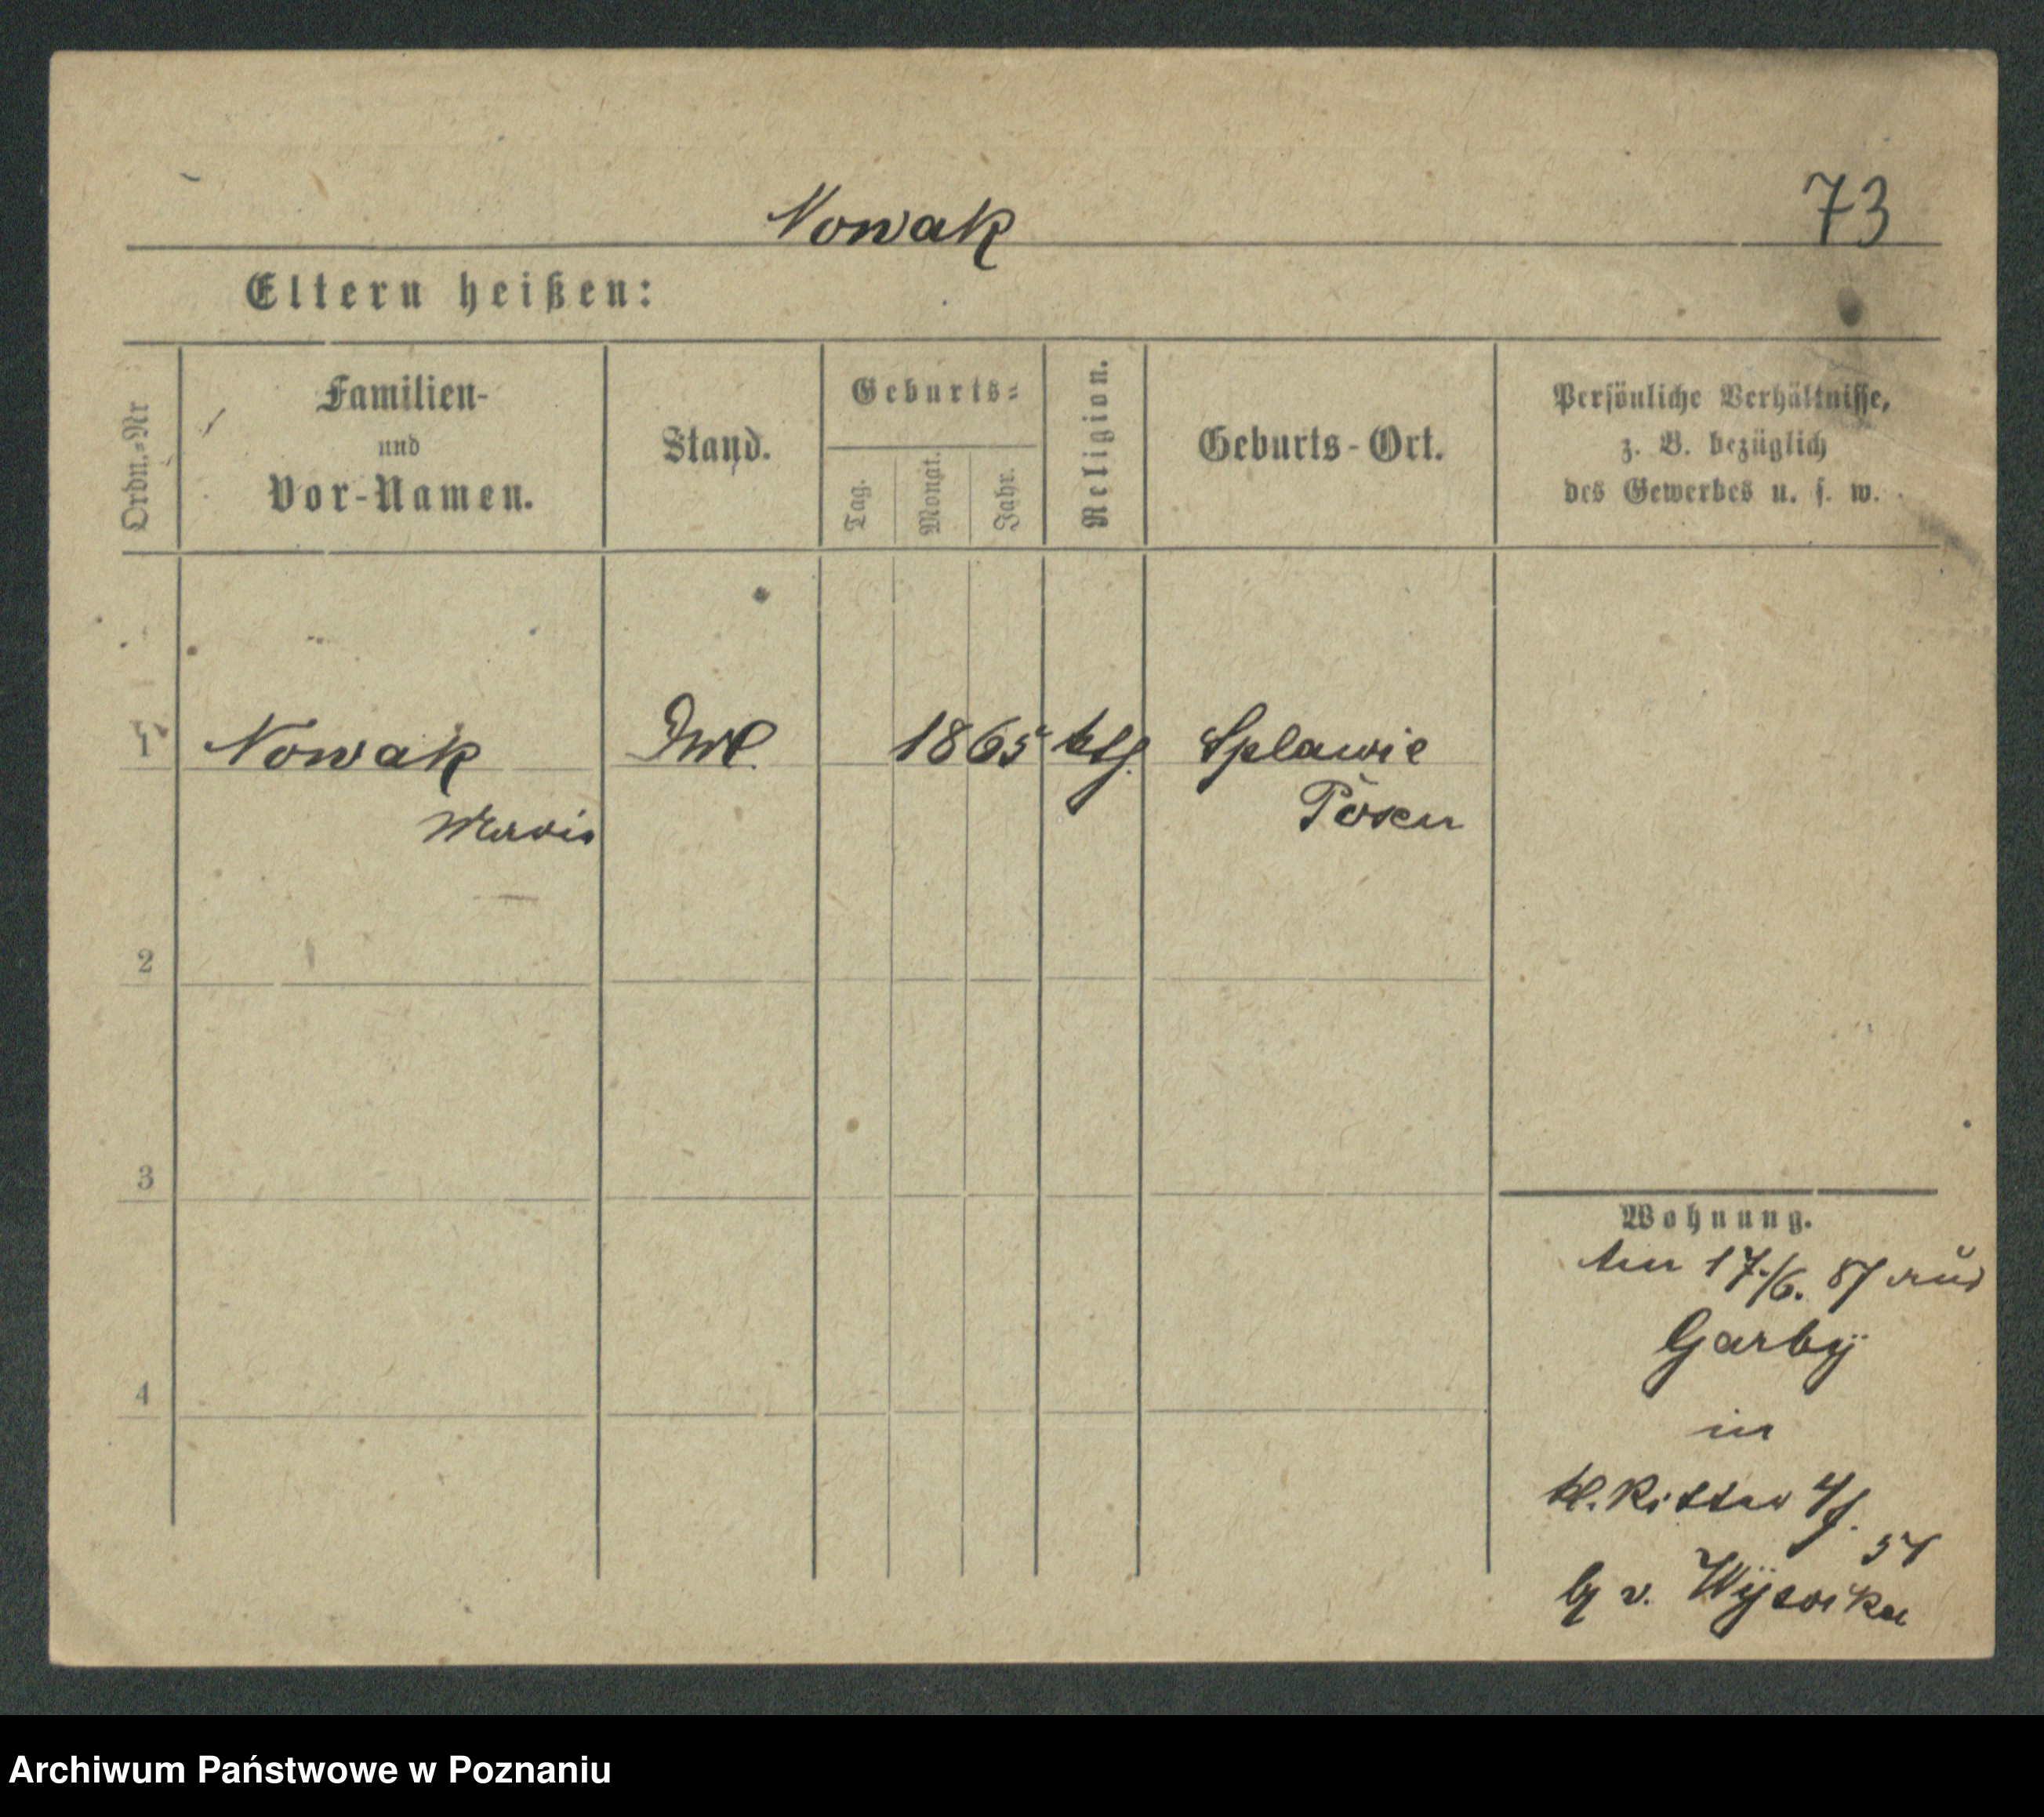 Nowak 73
Eltern heißen:
Ordn.-Nr
Familien-
und
Vor-Namen.
Stand.
Geburts-
Tag.
Monat.
Jahr.
Religion.
Geburts-Ort.
Persönliche Verhältnisse,
z. B. bezüglich
des Gewerbes u. s. w.
1 Nowak 1865 ktl. Splawie
Posen
2
3
4
Wohnung.
Am 17./6. 87 aus
Garby
in
kl. Ritter 4
b v.
Archiwum Państwowe w Poznaniu